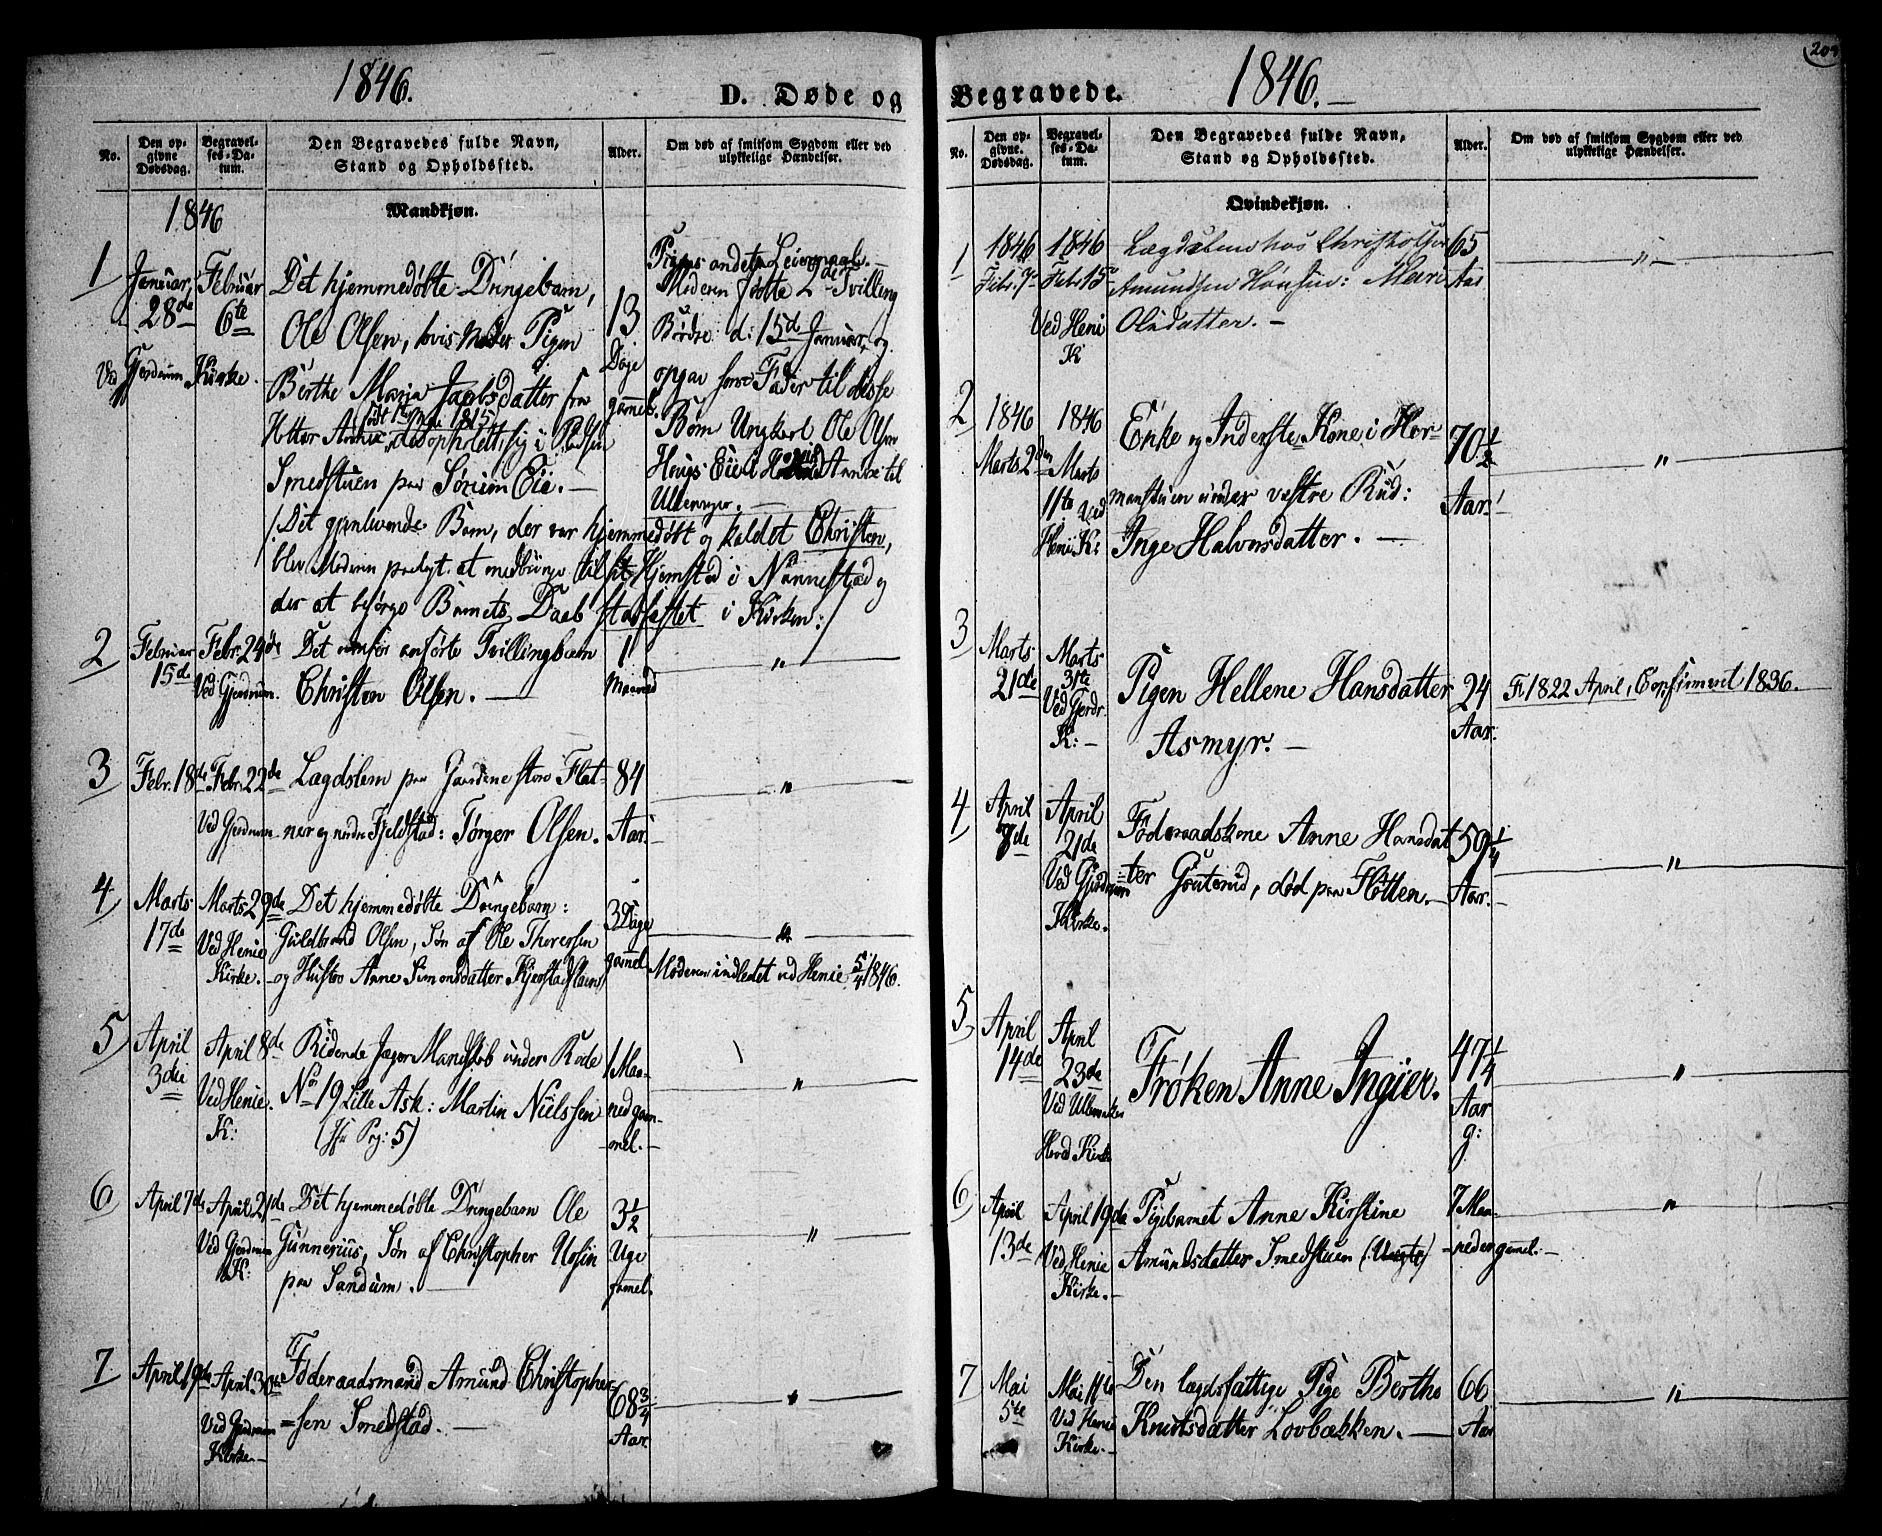 1846.
D. Døde og
No.
Den opgivne Dødsdag.
Begravelses-Datum.
Den Begravedes fulde Navn,
Stand og Opholdssted.
Alder.
Om død af smitsom Sygdom eller ved
ulykkelige Hændelser.
1846
Mandkjøn.
1
Januar
28de
Ved Gjerdrum Kirke.
Februar
6te
Det hjemmedøbte Drengebarn,
Ole Olsen, hvis Moder Pigen
Berthe Maria Jacobsdatter fra
Holter Annex, opholdt sig i
Smedstuen paa Sørum Eie. —
13
Dage
gammel.
Pigens andet Leiermaal. —
Moderen fødte 2de Tvilling
Børn d: 15de Januar, og
opgav som Fader til disse
Børn Ungkarl Ole Olsen
Haugs Eie i Annex til
Ullensager. —
/: Det gjenlevende Barn, der var hjemmedøbt og kaldet Christen,
blev Moderen paalagt at medbringe til sit Hjemsted i Nannestad og
der at besørge Barnets Daab stadfæstet i Kirken :/
2
Februar
15de
Febr. 24de
Ved Gjerdrum.
Det ovenfor anførte Tvillingbarn
Christen Olsen. —
1
Maaned
"
3
Febr. 18de
Febr. 22de
Ved Gjerdrum
Lægdslem paa Gaardene store Flat-
ner og nedre Fjeldstad: Torger Olsen.
84
Aar.
"
4
Marts
17de
Marts 29de
Ved Henie
Kirke.
Det hjemmedøbte Drengebarn:
Guldbrand Olsen, Søn af Ole Thoresen
og Hustro Anne Simonsdatter
3 Dage
gammel
Moderen indledet ved Henie 5/4 1846.
5
April
3die
April 8de
Ved Henie
K:
Ridende Jæger Mandskab under Rode
No 19 Lille Ask: Martin Nielsen
(Pag: 5)
1 Maa-
ned gam-
mel. —
"
6
April 7de
April 21de
Ved Gjerdrum
K:
Det hjemmedøbte Drengebarn Ole
Gunnerius, Søn af Christopher
paa Sandum. —
3 1/2
Uge
gammel.
"
7
April 19de
April 30te
Ved Gjerdrum
Kirke. —
Føderaadsmand Amund Christopher-
=sen Smedstad. —
68 3/4
Aar.
"
Begravede.
1846. —
No.
Den opgivne Dødsdag.
Begravelses-Datum.
Den Begravedes fulde Navn,
Stand og Opholdssted.
Alder.
Om død af smitsom Sygdom eller ved
ulykkelige Hændelser.
Qvindekjøn.
1
1846
Febr. 7de
1846
Febr 15de
Ved Heni
K
Lægdslem hos Christopher
Amundsen Hønsen: Mari
Olsdatter. —
65
Aar
"
2
1846
Marts 2den
1846
Marts
11te Ved
Heni K:
Enke og Inderste Kone i Her-
manstuen under vestre Rud:
Inge Halvorsdatter. —
70 1/2
Aar.
"
3
Marts
21de
Marts
31te
Ved Gjerdr.
K: —
Pigen Hellene Hansdatter
Asmyr. —
24
Aar.
F. 1822 April, Confirmeret 1836.
4
April
April
21de
Ved Gjerdrum
Kirke.
Føderaadskone Anne Hansdat
=ter, død paa Flotten. —
59 1/4
Aar. —
"
5
April
14de
April
23de
Ved Ullensakers
Hoved Kirke
Frøken Anne Ingier.
47 1/4
Aar
g:
"
6
April
13de
April 19de
Ved Henie
Kirke. —
Pigebarnet Anne Kirstine
Amundsdatter Smedstuen
7 Maa-
neder gamel. —
"
7
Mai
5te
Mai 11te
Ved Henie
Kirke. —
Den lægdsfattige Pige Berthe
Knutsdatter Lovbækken. —
66
Aar
"